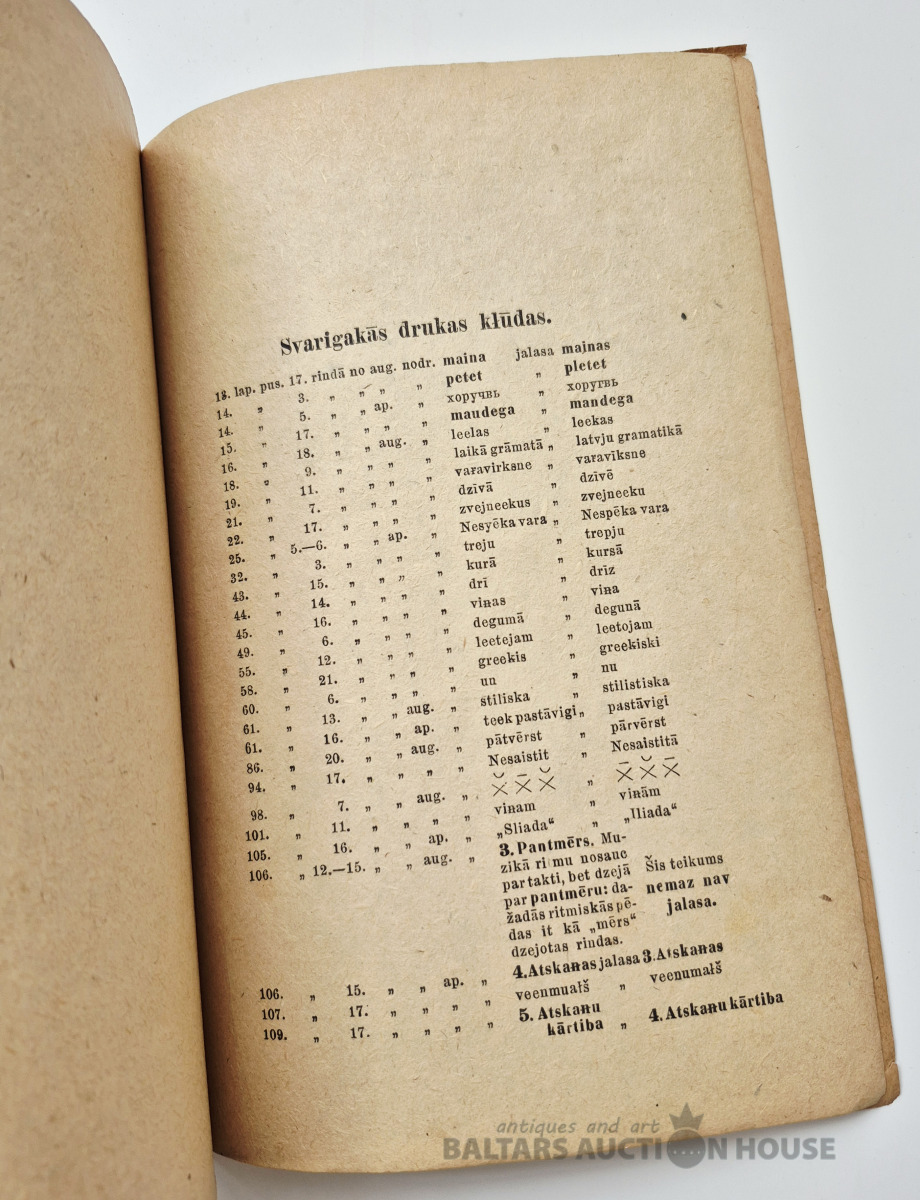 Svarigakās drukas kłūdas.
13. lap. pus. 17. rindā no aug. nodr. maina jalasa mainas
14. „ 3. „ „ „ „ petet „ pletet
14. „ 5. „ „ ap. „ хоручвь „ хоругвь
15. „ 17. „ „ „ „ maudega „ mandega
16. „ 18. „ „ aug. „ leelas „ leekas
18. „ 9. „ „ „ „ laikā grāmatā „ latvju gramatikā
19. „ 11. „ „ „ „ varavirksne „ varavīksne
21. „ 7. „ „ „ „ dzīvā „ dzīvē
22. „ 17. „ „ „ „ zvejneekus „ zvejneeku
25. „ 5.—6. „ „ ap. „ Nesyēka vara „ Nespēka vara
32. „ 3. „ „ „ „ treju „ trepju
43. „ 15. „ „ „ „ kurā „ kursā
44. „ 14. „ „ „ „ drī „ drīz
45. „ 16. „ „ „ „ viꞥas „ viꞥa
49. „ 6. „ „ „ „ degumā „ degunā
55. „ 12. „ „ „ „ leetejam „ leetojam
58. „ 21. „ „ „ „ greeꞣis „ greeꞣiski
60. „ 6. „ „ „ „ un „ nu
61. „ 13. „ „ aug. „ stiliska „ stilistiska
61. „ 16. „ „ ap. „ teek pastāvigi „ pastāvigi
86. „ 20. „ „ aug. „ pātvērst „ pārvērst
94. „ 17. „ „ „ „ Nesaistit „ Nesaistitā
98. „ 7. „ „ aug. „ X̆ X̄ X̆ „ X̄ X̆ X̄
101. „ 11. „ „ „ „ viꞥam „ viꞥām
105. „ 16. „ „ ap. „ „Sliada“ „ „Iliada“
106. „ 12.—15. „ „ aug. „ 3. Pantmērs. Mu-
zikā ritmu nosauc
par takti, bet dzejā Šis teikums
par pantmēru: da- nemaz nav
žadās ritmiskās pē- jalasa.
das it kā „mērs“
dzejotas rindas.
106. „ 15. „ „ ap. „ 4. Atskaꞥas jalasa 3. Atskaꞥas
107. „ 17. „ „ „ „ veenmuałš „ veenumałš
109. „ 17. „ „ „ „ 5. Atskaꞥu
kārtiba „ 4. Atskaꞥu kārtiba
antiques and art
BALTARS AUCTION HOUSE